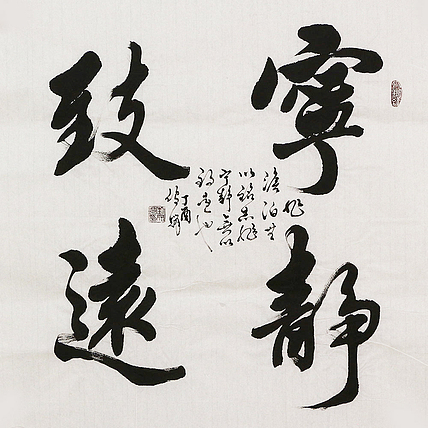 寧靜
致遠
非
淡泊無
以銘志非
寧靜無以
致遠也
丁酉